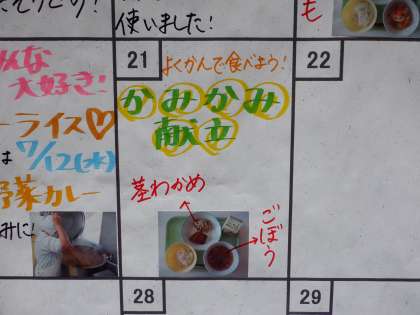 使いました!
も
21
22
よくかんで食べよう!
みんな
大好き!
かみかみ
献立
ーライス♡
は 7/12(水)
野菜カレー
みに!
茎わかめ
ごぼう
28
29